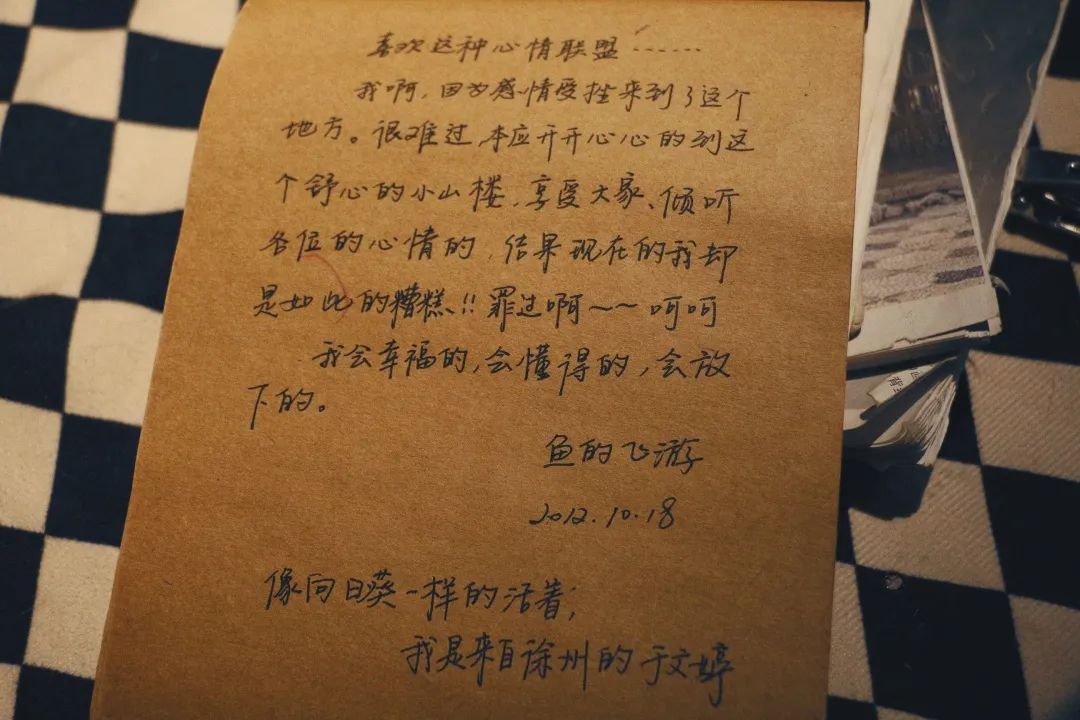 喜欢这种心情联盟……
我啊,因为感情受挫来到了这个
地方。很难过,本应开开心心的到这
个舒心的小山楼,享受大家、倾听
各位的心情的,结果现在的我却
是如此的糟糕!!罪过啊~~呵呵
我会幸福的,会懂得的,会放
下的。
鱼的飞游
2012.10.18
像向日葵一样的活着;
我是来自徐州的于文婷